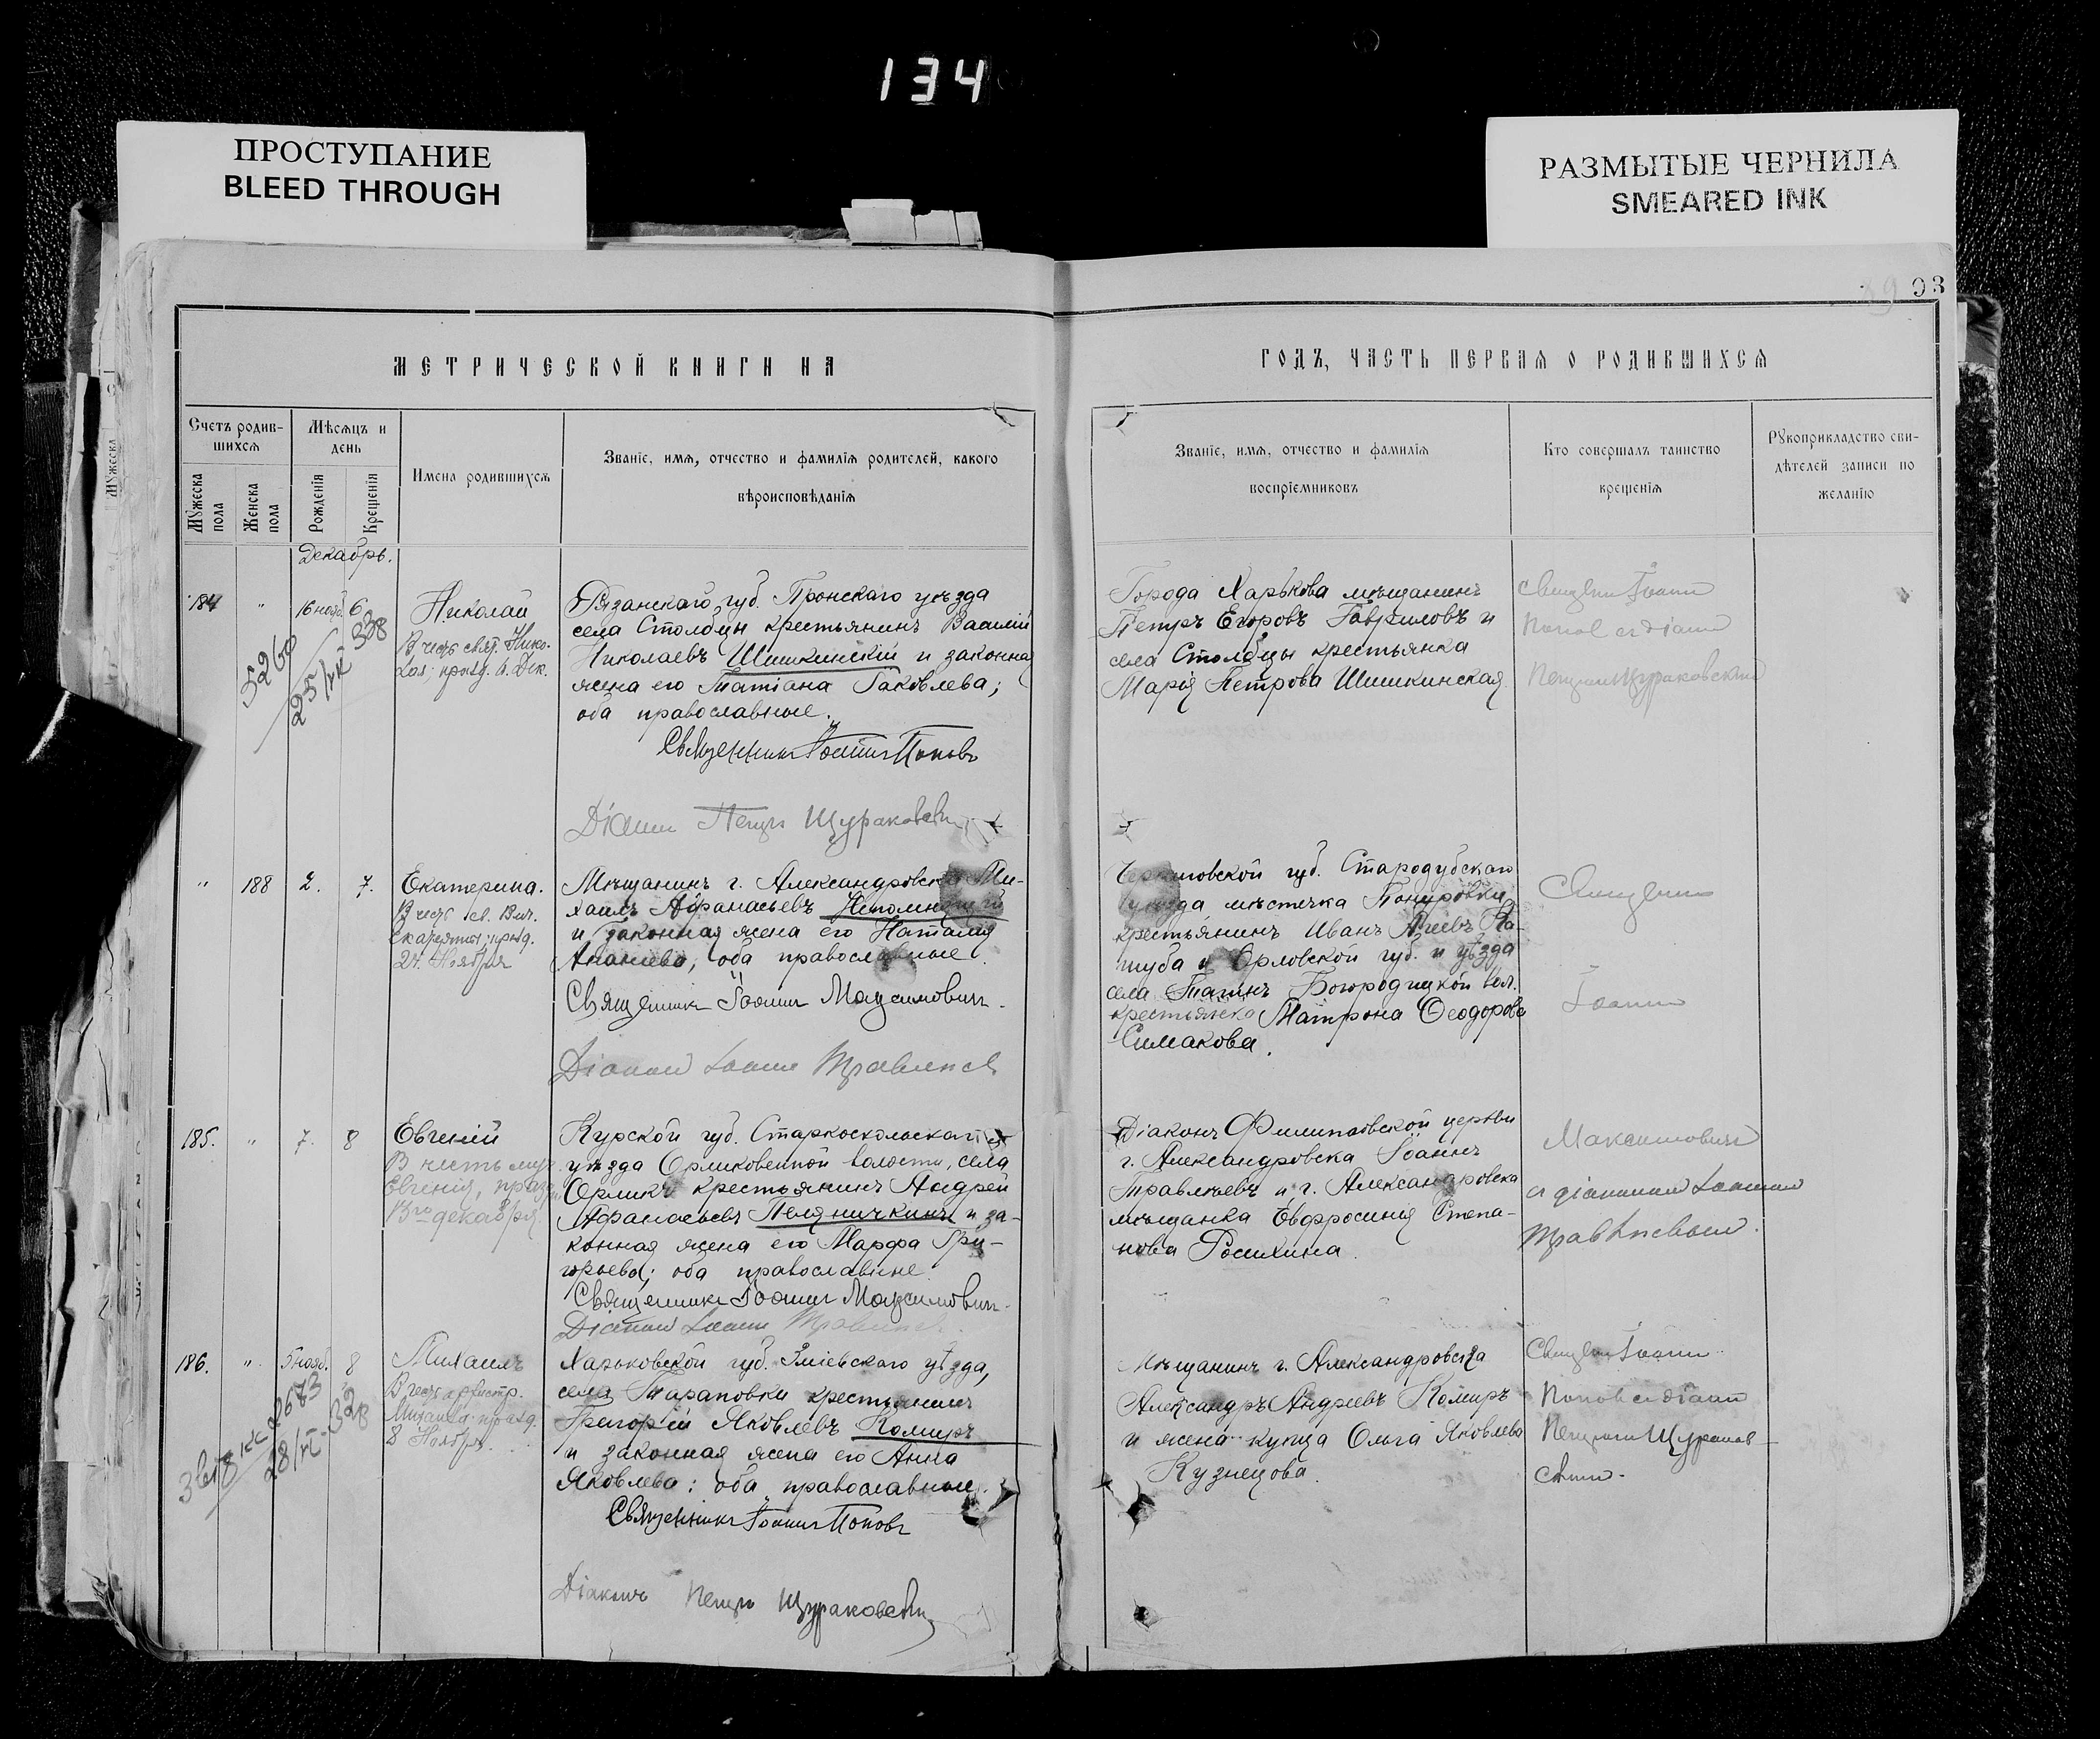 134
ПРОСТУПАНИЕ
BLEED THROUGH
РАЗМЫТЫЕ ЧЕРНИЛА
SMEARED INK
93
МЕТРИЧЕСКОЙ КНИГИ НА
ГОДЪ, ЧАСТЬ ПЕРВАЯ О РОДИВШИХСЯ
Счетъ родив-
шихся
Мѣсяцъ и
день
Мужеска
пола
Женска
пола
Рожденія
Крещенія
Имена родившихся
Званіе, имя, отчество и фамилія родителей, какого
вѣроисповѣданія
Званіе, имя, отчество и фамилія
воспріемниковъ
Кто совершалъ таинство
крещенія
Рукоприкладство сви-
дѣтелей записи по
желанію
Декабрь.
184 " 16 нояб. 6
Николай
В честь свят. Нико-
лая; празд. 6. Дек.
5260
25/IX 338
Рязанскаго губ. Пронскаго уѣзда
села Столбцы крестьянинъ Василій
Николаевъ Шишкинскій и законная
жена его Татіана Іаковлева;
оба православные.
Священникъ Іоаннъ Поповъ
Діаконъ Петръ Щураковскій
Города Харькова мѣщанинъ
Петръ Егоровъ Гавриловъ и
села Столбцы крестьянка
Марія Петрова Шишкинская
Священ. Іоаннъ
Поповъ съ діакон.
Петромъ Щураковскимъ
" 188 2. 7.
Екатерина.
В честь св. Вел.
Екатерины; празд.
24 Ноября
Мѣщанинъ г. Александровска Ми-
хаилъ Афанасьевъ Непомнящій
и законная жена его Наталія
Ананьева, оба православные.
Священникъ Іоаннъ Максимовичъ.
Діаконъ Іоаннъ Травлѣевъ
Черниговской губ. Стародубскаго
уѣзда мѣстечка Понуровки
крестьянинъ Иванъ
и Орловской губ. и уѣзда
села Богородицкой вол.
крестьянка Матрона Ѳеодорова
Симакова.
Священникъ
Іоаннъ
185. " 7. 8
Евгеній
В честь муч.
Евгенія, празд.
декабря
Курской губ. Старооскольскаго
уѣзда Орликовской волости, села
Орликъ крестьянинъ Андрей
Афанасьевъ и за-
конная жена его Марфа Гри-
горьева; оба православные.
Священникъ Іоаннъ Максимовичъ.
Діаконъ Іоаннъ Травлѣевъ
Діаконъ Филипповской церкви
г. Александровска Іоаннъ
Травлѣевъ и г. Александровска
мѣщанка Евфросинія Степа-
нова
Максимовичъ
съ діакономъ Іоанномъ
Травлѣевымъ.
186. " 5 нояб. 8
Михаилъ
В честь архистр.
Михаила празд.
8 Ноября.
2673
28/IX 328
Харьковской губ. Зміевскаго уѣзда,
села Тарановки крестьянинъ
Григорій Яковлевъ Комиръ
и законная жена его Анна
Яковлева; оба православные.
Священникъ Іоаннъ Поповъ
Діаконъ Петръ Щураковскій
Мѣщанинъ г. Александровска
Александръ Андреевъ Комиръ
и жена купца Ольга Яковлева
Кузнецова.
Священ. Іоаннъ
Поповъ съ діакон.
Петромъ Щураков-
скимъ.